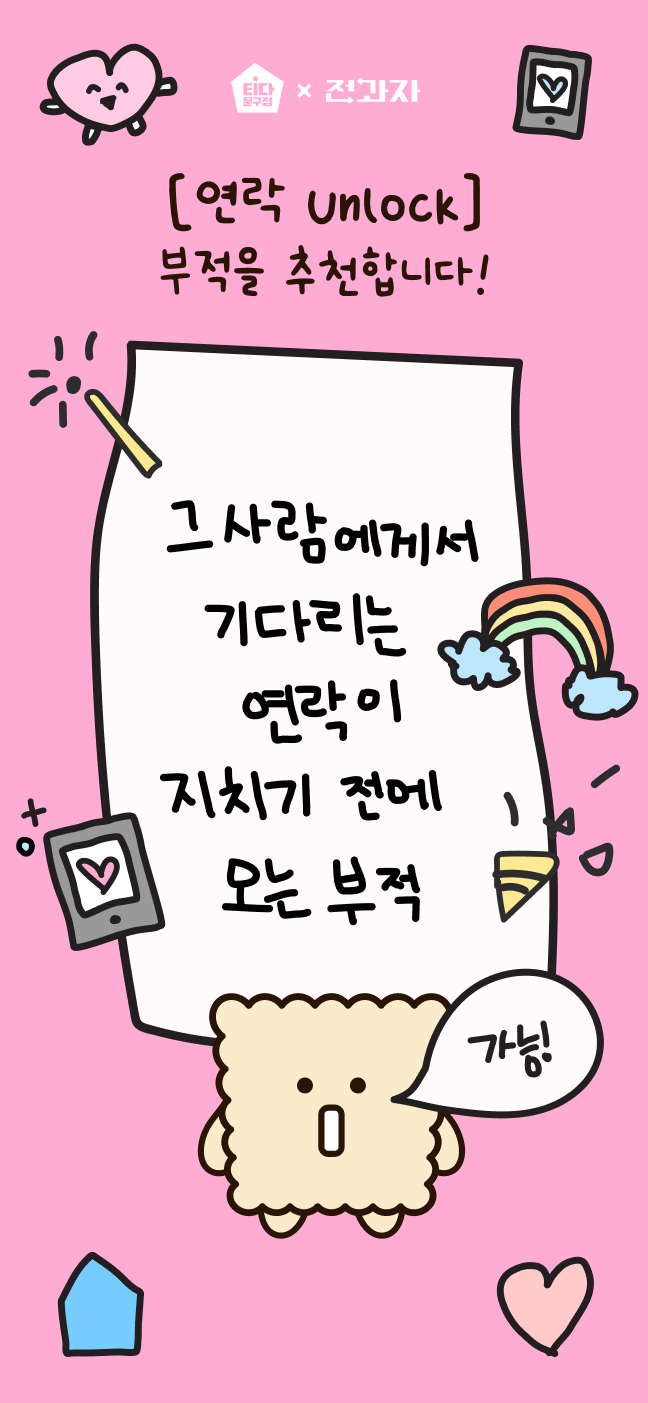 티다
문구점 × 전과자
[연락 unlock]
부적을 추천합니다!
그 사람에게서
기다리는
연락이
지치기 전에
오는 부적
가능!